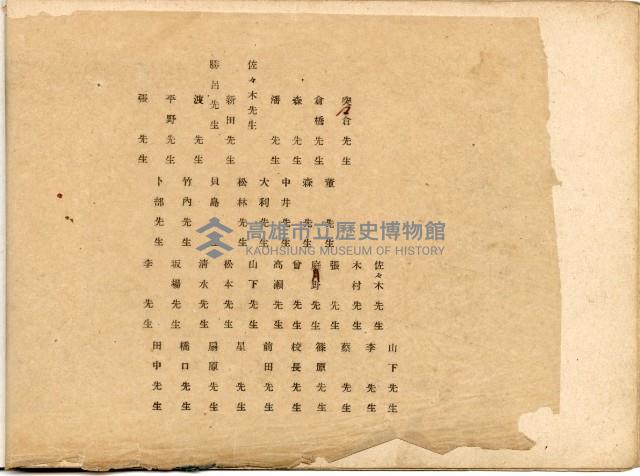 佐々木先生
勝呂先生
突倉先生
倉橋先生
森先生
潘先生
新田先生
波先生
平野先生
張先生
董先生
森先生
中井先生
大利先生
松林先生
貝島先生
竹内先生
卜部先生
佐々木先生
木村先生
張先生
野先生
曾先生
高瀬先生
山下先生
松本先生
清水先生
坂場先生
李先生
山下先生
李先生
蔡先生
篠原先生
校長先生
前田先生
星先生
扇原先生
橋口先生
田中先生
高雄市立歷史博物館
KAOHSIUNG MUSEUM OF HISTORY